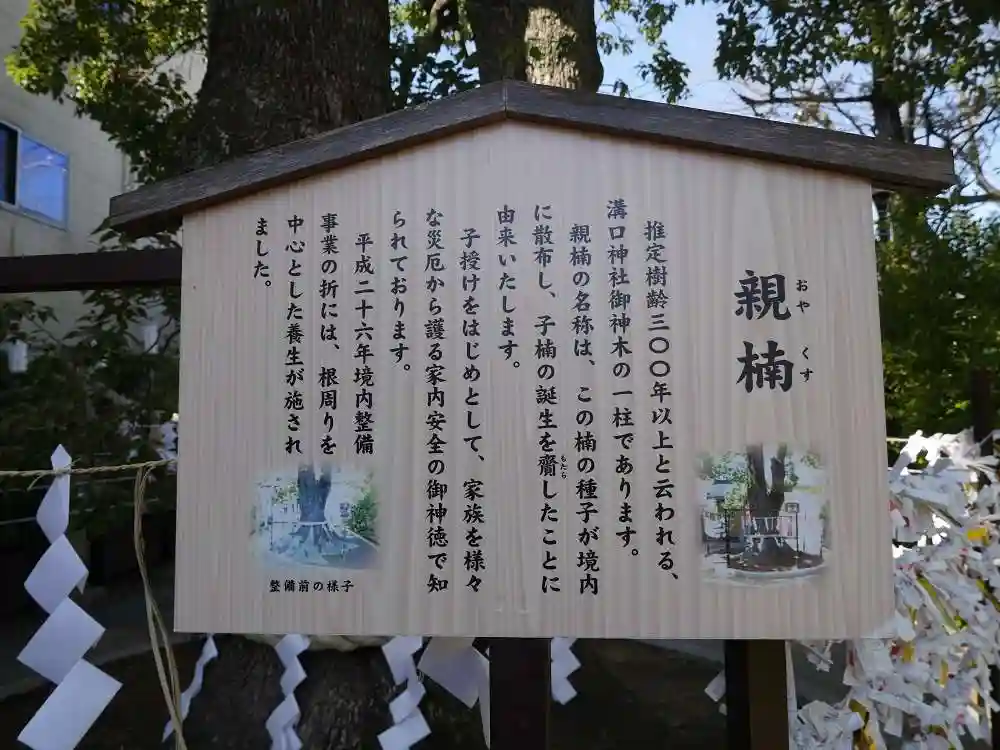 親楠
おやくす
推定樹齢三〇〇年以上と云われる、
溝口神社御神木の一柱であります。
親楠の名称は、この楠の種子が境内
に散布し、子楠の誕生を齎したことに
もたら
由来いたします。
子授けをはじめとして、家族を様々
な災厄から護る家内安全の御神徳で知
られております。
平成二十六年境内整備
事業の折には、根周りを
中心とした養生が施され
ました。
整備前の様子